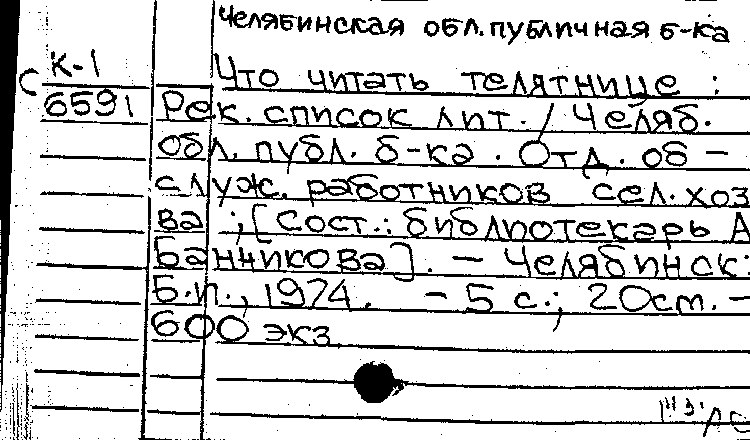 Челябинская обл. публичная б-ка
К-1
С
6591
Что читать телятнице :
Рек. список лит. / Челяб.
обл. публ. б-ка. Отд. об-
служ. работников сел. хоз
ва ; [сост.: библиотекарь А
Банчикова]. — Челябинск:
Б.и., 1974. – 5 с.; 20см. –
600 экз.